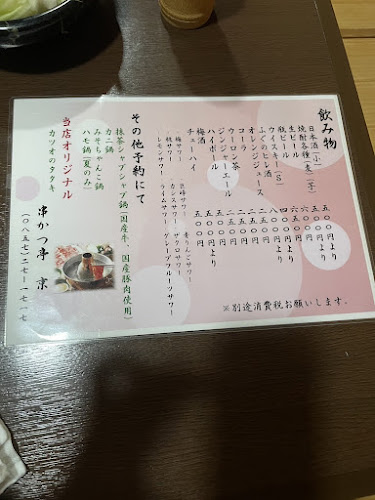 飲み物
日本酒(小) 五〇〇円より
焼酎各種(麦)(芋) 四〇〇円より
生ビール 六五〇円
瓶ビール
ウイスキー(S) 五〇〇円より
ふぐのヒレ酒 八〇〇円
オレンジジュース 二五〇円
コーラ 二五〇円
ウーロン茶 二五〇円
ジンジャーエール 二五〇円
ハイボール 五〇〇円
梅酒 五〇〇円より
チューハイ 五〇〇円
梅サワー 巨峰サワー 青りんごサワー
桃サワー カシスサワー ザクロサワー
レモンサワー ライムサワー グレープフルーツサワー
その他予約にて
抹茶シャブシャブ鍋(国産牛、国産豚肉使用)
カニ鍋
みそちゃんこ鍋
ハモ鍋(夏のみ)
当店オリジナル
カツオのタタキ
串かつ亭 京
(〇八五七)二七
※別途消費税お願いします。